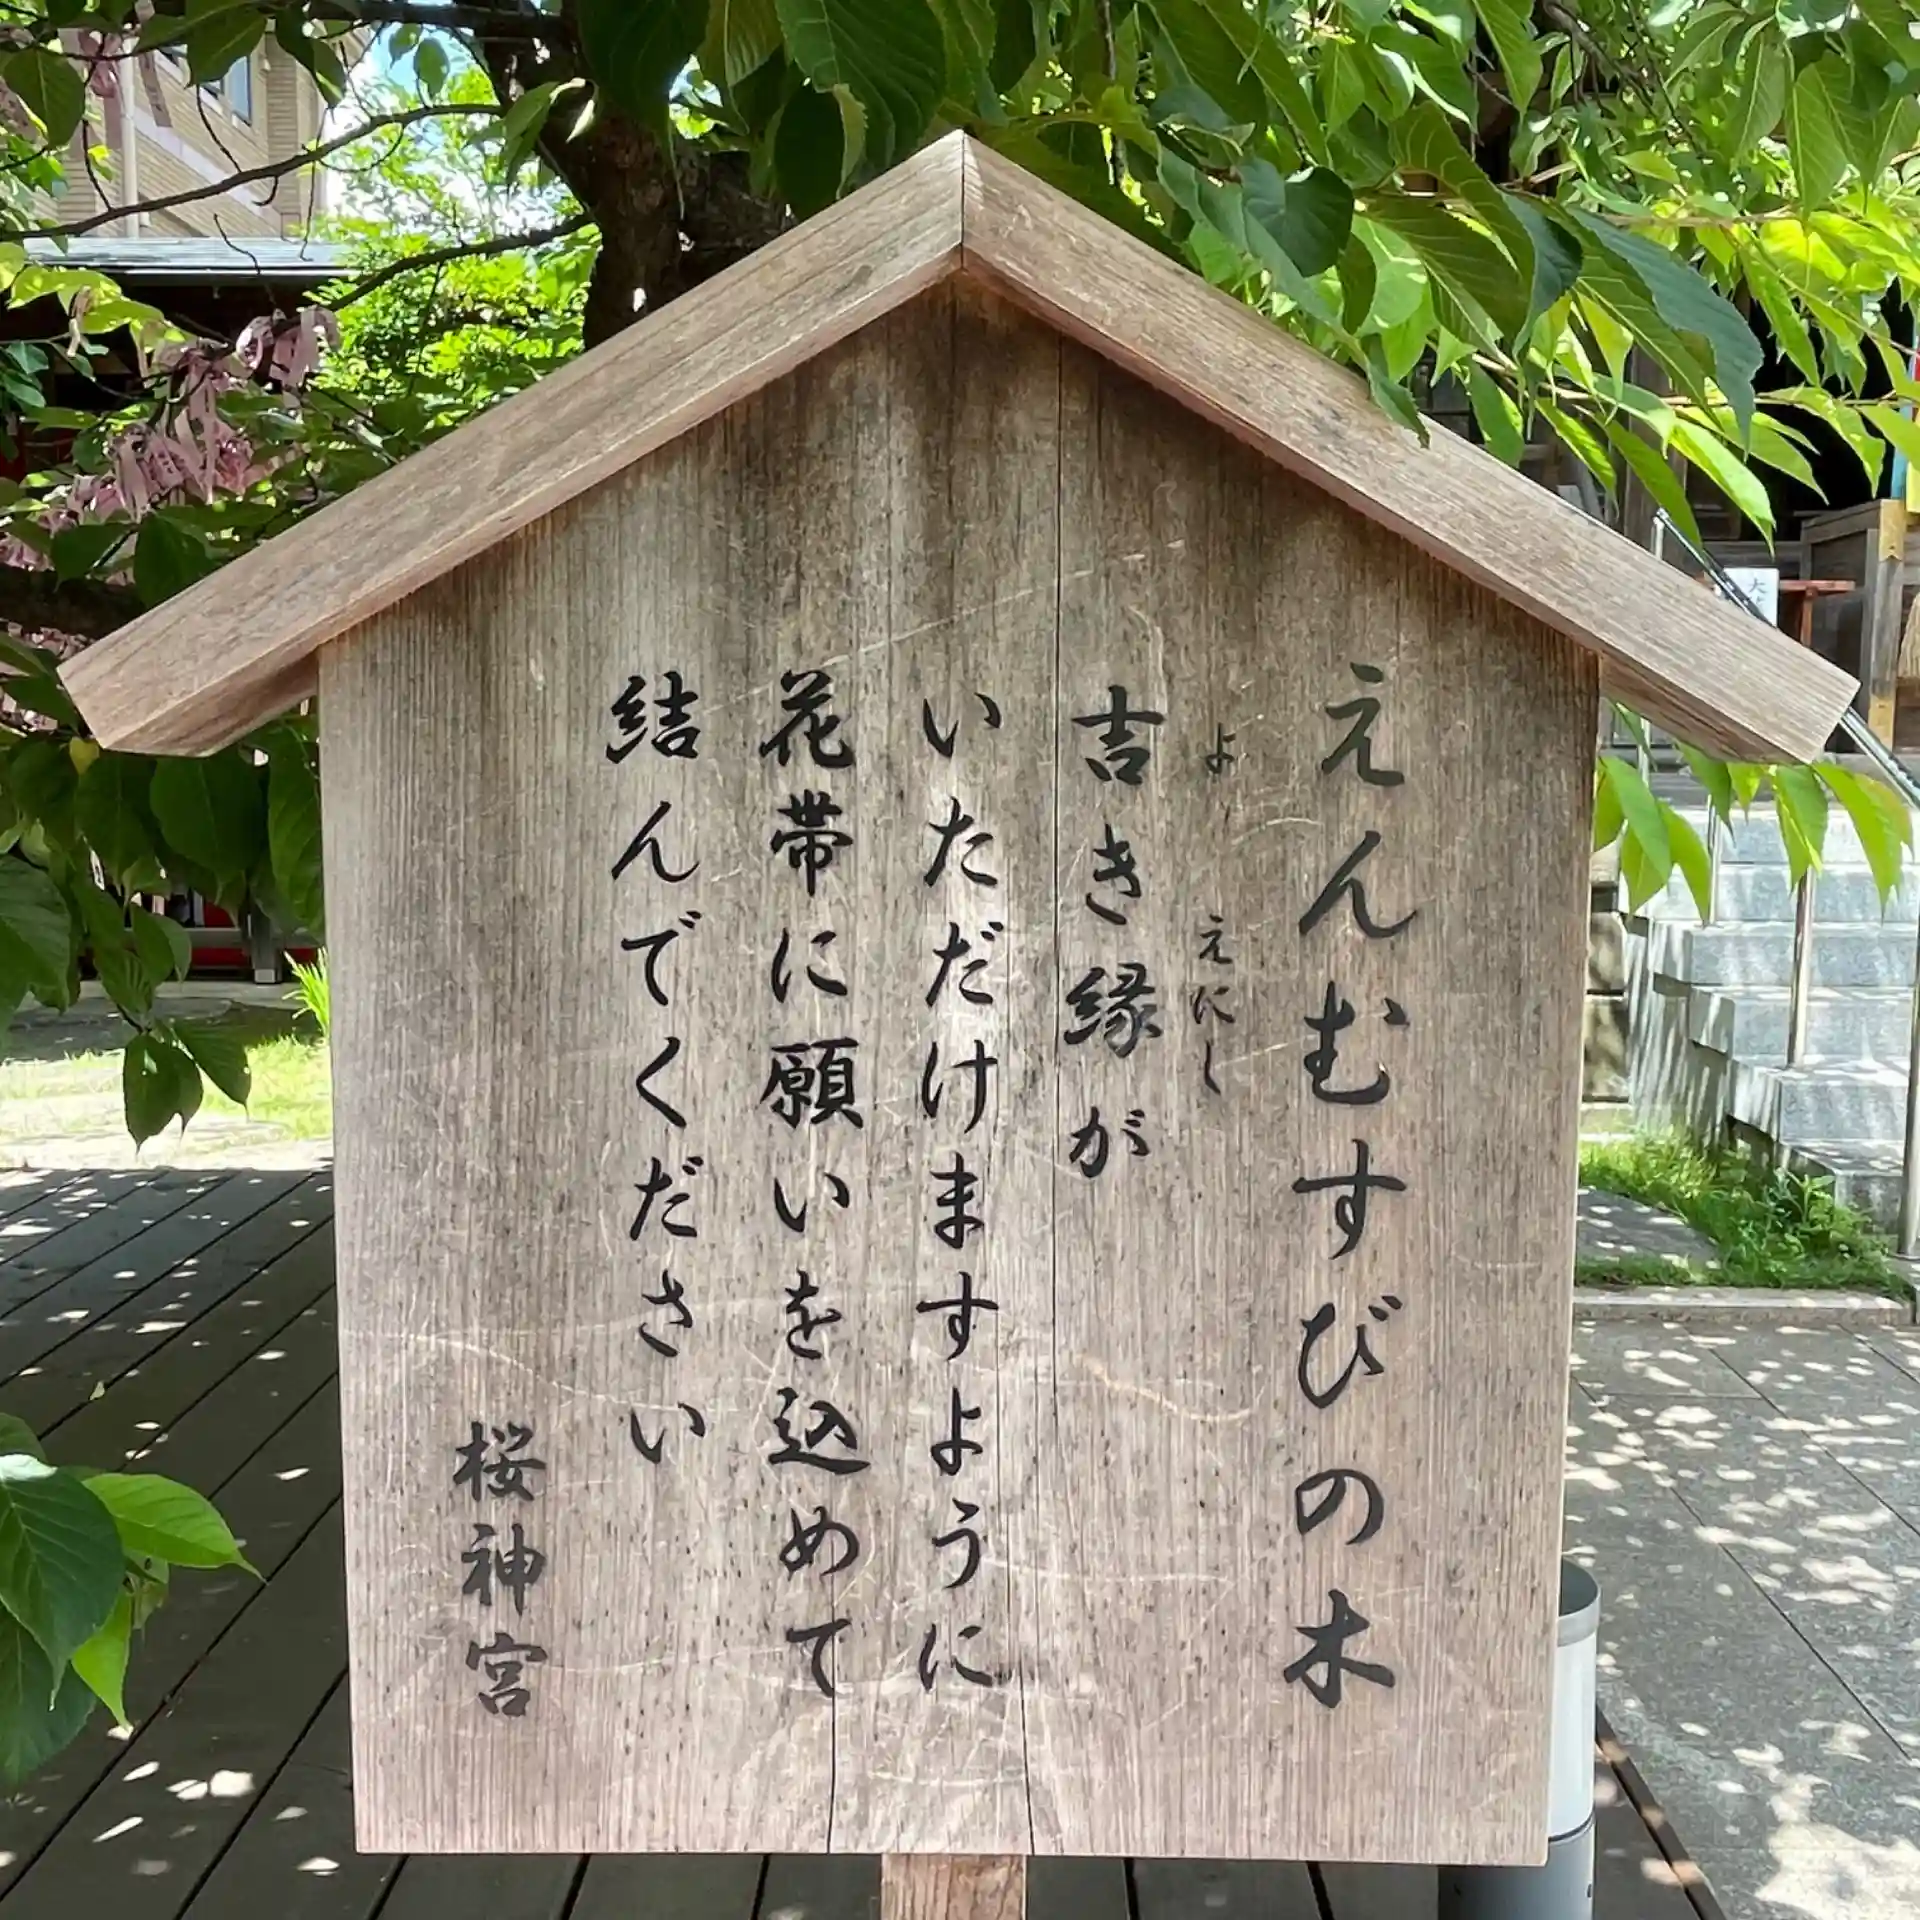 えんむすびの木
よ えにし
吉き縁が
いただけますように
花帯に願いを込めて
結んでください
桜神宮
大